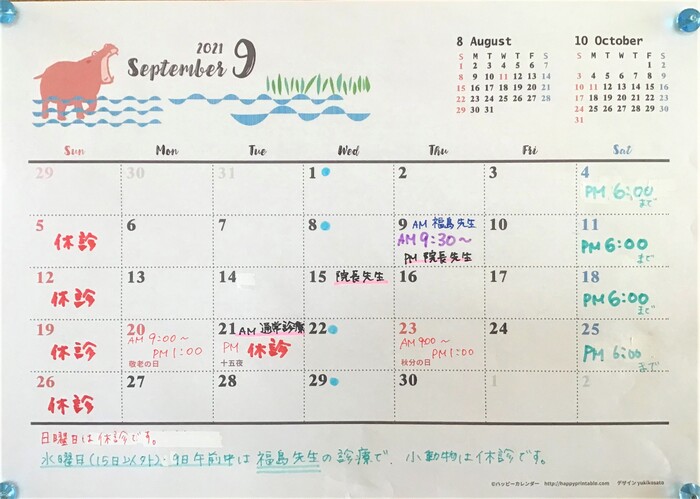 2021
September 9
8 August
S M T W T F S
1 2 3 4 5 6 7
8 9 10 11 12 13 14
15 16 17 18 19 20 21
22 23 24 25 26 27 28
29 30 31
10 October
S M T W T F S
1 2
3 4 5 6 7 8 9
10 11 12 13 14 15 16
17 18 19 20 21 22 23
24 25 26 27 28 29 30
31
Sun Mon Tue Wed Thu Fri Sat
29 30 31 1 2 3 4
PM 6:00
まで
5 6 7 8 9 AM 福島先生 10 11
休診 AM 9:30〜 PM 6:00
PM 院長先生 まで
12 13 14 15 院長先生 16 17 18
休診 PM 6:00
まで
19 20 21 AM 通常診療 22 23 24 25
休診 AM 9:00〜 PM 休診 AM 9:00〜 PM 6:00
PM 1:00 PM 1:00 まで
敬老の日 十五夜 秋分の日
26 27 28 29 30 1 2
休診
日曜日は休診です。
水曜日(15日以外)・9日午前中は福島先生の診療で、小動物は休診です。
©ハッピーカレンダー http://happyprintable.com デザイン yukikosato